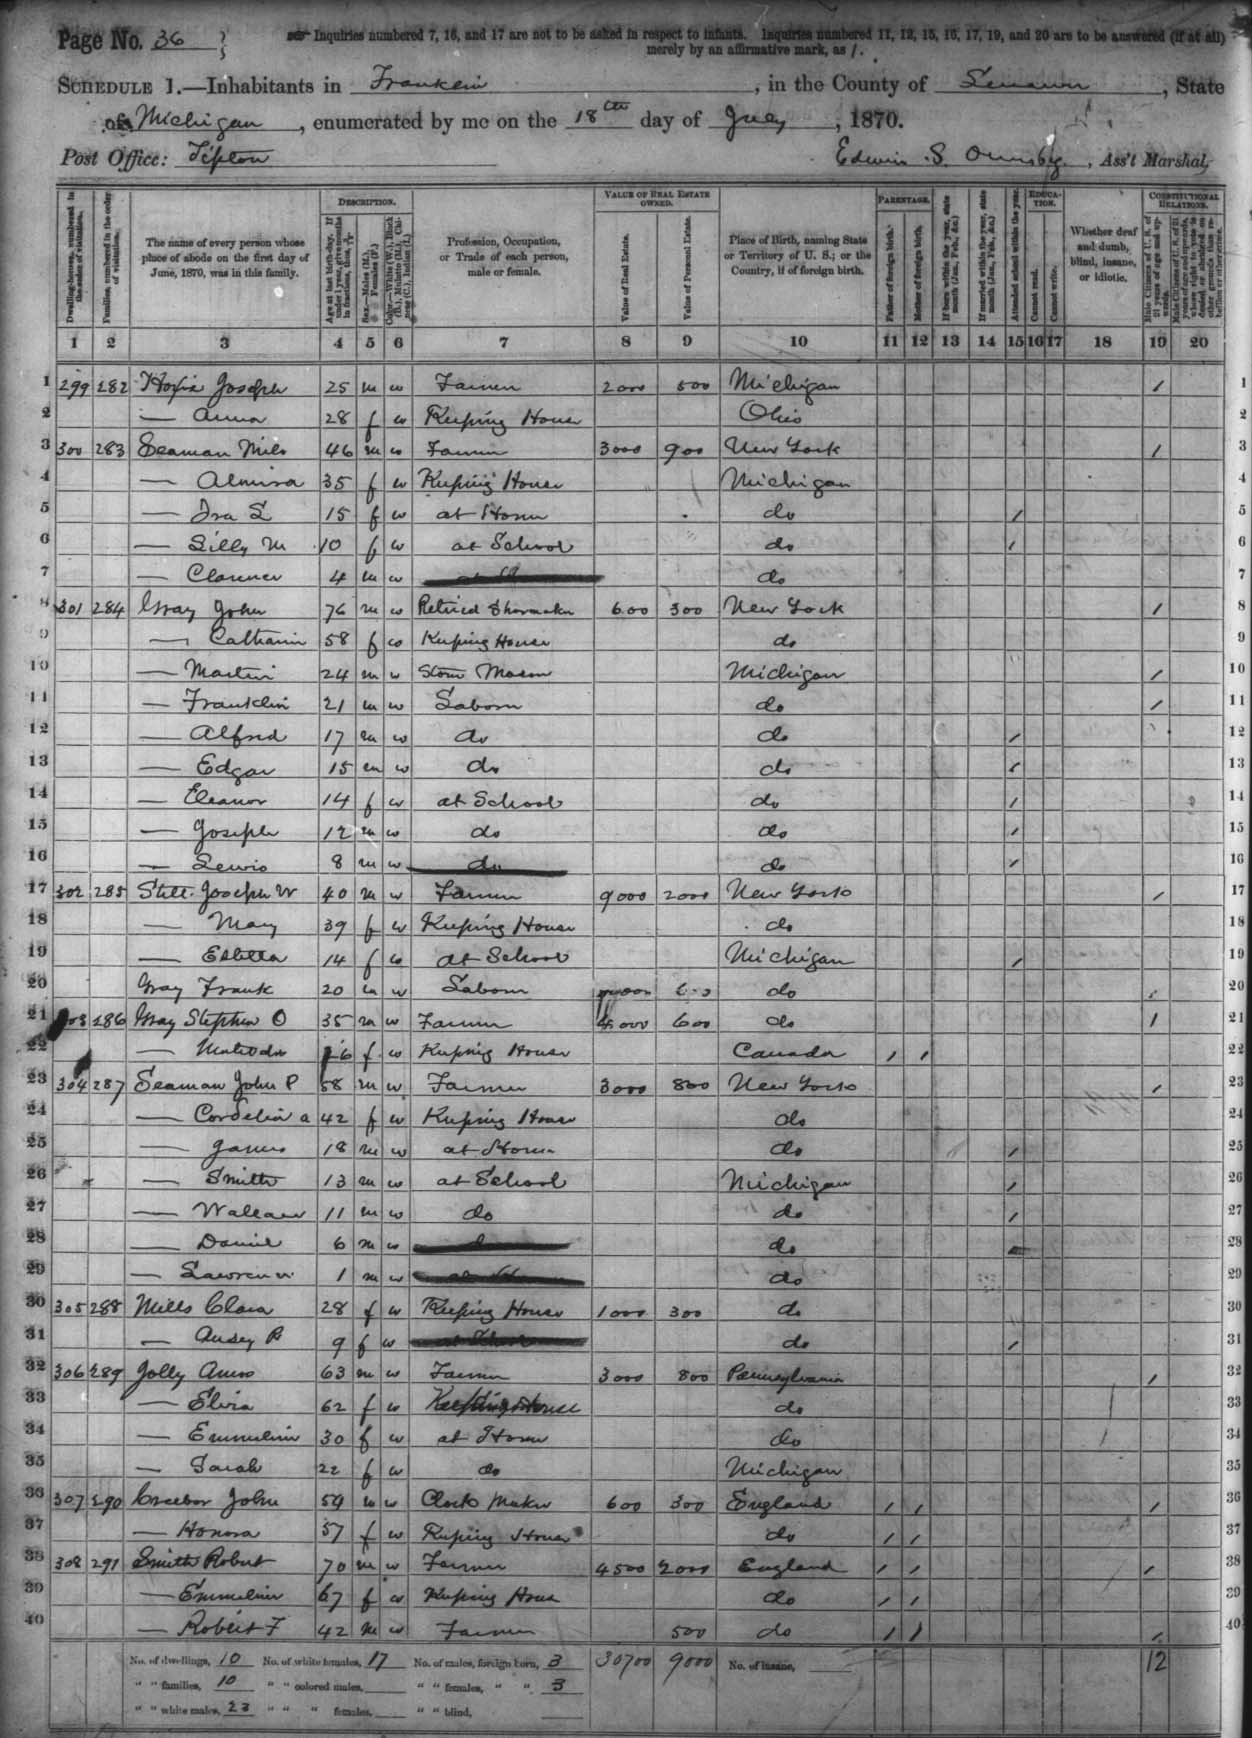 Page No. 36
Inquiries numbered 7, 16, and 17 are not to be asked in respect to infants. Inquiries numbered 11, 12, 15, 16, 17, 19, and 20 are to be answered (if at all)
merely by an affirmative mark, as /.
SCHEDULE 1.—Inhabitants in Franklin, in the County of Lenawee, State
of Michigan, enumerated by me on the 18th day of July, 1870.
Post Office: Tipton Edwin S. Ormsby, Ass't Marshal,
Dwelling-houses, numbered in the order of visitation.
Families, numbered in the order of visitation.
The name of every person whose place of abode on the first day of June, 1870, was in this family.
DESCRIPTION.
Age at last birth-day. If under 1 year, give months in fractions, thus,
Sex.—Males (M.), Females (F.)
Color.—White (W.), Black (B.), Mulatto (M.), Chinese (C.), Indian (I.)
Profession, Occupation, or Trade of each person, male or female.
VALUE OF REAL ESTATE OWNED.
Value of Real Estate.
Value of Personal Estate.
Place of Birth, naming State or Territory of U. S.; or the Country, if of foreign birth.
PARENTAGE.
Father of foreign birth.
Mother of foreign birth.
If born within the year, state month (Jan., Feb., &c.)
If married within the year, state month (Jan., Feb., &c.)
Attended school within the year.
EDUCATION.
Cannot read.
Cannot write.
Whether deaf and dumb, blind, insane, or idiotic.
CONSTITUTIONAL RELATIONS.
Male Citizens of U. S. of 21 years of age and upwards.
1 2 3 4 5 6 7 8 9 10 11 12 13 14 15 16 17 18 19 20
1 299 282 Joseph 25 m w Farmer 2000 500 Michigan / 1
2 — Anna 28 f w Keeping House Ohio 2
3 300 283 Seaman Milo 46 m w Farmer 3000 900 New York / 3
4 — Almira 35 f w Keeping House Michigan 4
5 — Ira L 15 f w at Home do / 5
6 — Lilly M 10 f w at School do / 6
7 — Clarence 4 m w do 7
8 301 284 Gray John 76 m w Retired Shoemaker 600 300 New York / 8
9 — Catharin 58 f w Keeping House do 9
10 — Martin 24 m w Stone Mason Michigan / 10
11 — Franklin 21 m w Laborer do / 11
12 — Alfred 17 m w do do / 12
13 — Edgar 15 m w do do / 13
14 — Eleanor 14 f w at School do / 14
15 — Joseph 12 m w do do / 15
16 — Lewis 8 m w do do / 16
17 302 285 Joseph W 40 m w Farmer 9000 2000 New York / 17
18 — Mary 39 f w Keeping House do 18
19 — Estella 14 f w at School Michigan / 19
20 Gray Frank 20 m w Laborer do 20
21 303 286 Gray Stephen O 35 m w Farmer 4000 600 do / 21
22 — 26 f w Keeping House Canada / / 22
23 304 287 Seaman John P 58 m w Farmer 3000 800 New York / 23
24 — Cordelia A 42 f w Keeping House do 24
25 — James 18 m w at Home do / 25
26 — Smith 13 m w at School Michigan / 26
27 — Wallace 11 m w do do / 27
28 — Daniel 6 m w do 28
29 — Lawrence 1 m w do 29
30 305 288 Mills Clara 28 f w Keeping House 1000 300 do 30
31 — 9 f w at School do / 31
32 306 289 Jolly Amos 63 m w Farmer 3000 800 Pennsylvania / 32
33 — Elvira 62 f w Keeping House do 33
34 — Emmeline 30 f w at Home do 34
35 — Sarah 22 f w do Michigan 35
36 307 290 John 54 m w Clock Maker 600 300 England / / / 36
37 — Honora 57 f w Keeping House do / / 37
38 308 291 Smith Robert 70 m w Farmer 4500 2000 England / / / 38
39 — Emmeline 67 f w Keeping House do / / 39
40 — Robert F 42 m w Farmer 500 do / / / 40
No. of dwellings, 10 No. of white females, 17 No. of males, foreign born, 3 30700 9000 No. of insane, 12
" " families, 10 " " colored males, " " females, " " 3
" " white males, 23 " " " females, " " blind,